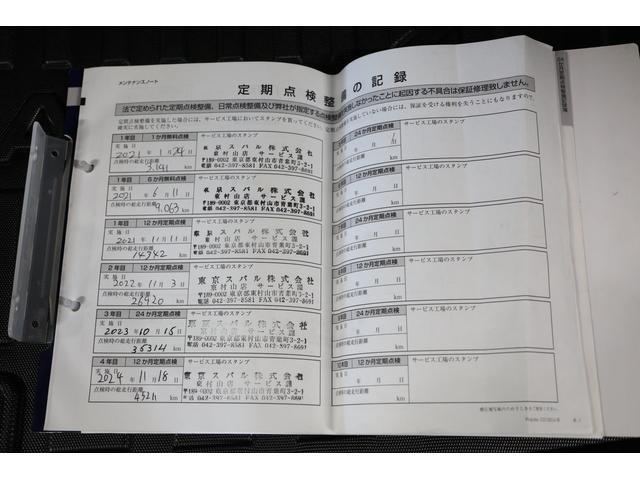 メンテナンスノート
定期点検整備の記録
法で定められた定期点検整備、日常点検整備及び弊社が指定する点検整備
しなかったことに起因する不具合は保証修理致しません。
定期点検整備を実施した場合には、サービス工場においてスタンプを貰ってください。
確実に実施してください。
していない場合には、保証を受ける権利を失うことになりますので、
1年目 1か月無料点検 サービス工場のスタンプ
実施日 2021年 1月 24日
東京スバル株式会社
東村山店 サービス課
〒189-0002 東京都東村山市青葉町3-2-1
TEL 042-397-8581 FAX 042-397-8691
点検時の総走行距離 km
1年目 6か月無料点検 サービス工場のスタンプ
実施日 2021年 6月 11日
東京スバル株式会社
東村山店 サービス課
〒189-0002 東京都東村山市青葉町3-2-1
電話 042-397-8581 FAX 042-397-8691
点検時の総走行距離 9,063 km
1年目 12か月定期点検 サービス工場のスタンプ
実施日 2021年 11月 11日
東京スバル株式会社
東村山店 サービス課
〒189-0002 東京都東村山市青葉町3-2-1
電話 042-397-8581 FAX 042-397-8691
点検時の総走行距離 km
2年目 12か月定期点検 サービス工場のスタンプ
実施日 2022年 11月 3日
東京スバル株式会社
東村山店 サービス課
〒189-0002 東京都東村山市青葉町3-2-1
電話 042-397-8581 FAX 042-397-8691
点検時の総走行距離 26920 km
3年目 24か月定期点検 サービス工場のスタンプ
実施日 2023年 10月 15日
東京スバル株式会社
東村山店 サービス課
〒189-0002 東京都東村山市青葉町3-2-1
電話 042-397-8581 FAX 042-397-8691
点検時の総走行距離 35314 km
4年目 12か月定期点検 サービス工場のスタンプ
実施日 2024年 11月 18日
東京スバル株式会社
東村山店 サービス課
〒189-0002 東京都東村山市青葉町3-2-1
電話 042-397-8581 FAX 042-397-8691
点検時の総走行距離 km
24か月定期点検 サービス工場のスタンプ
年 月 日
総走行距離 km
12か月定期点検 サービス工場のスタンプ
年 月 日
総走行距離 km
24か月定期点検 サービス工場のスタンプ
年 月 日
総走行距離 km
12か月定期点検 サービス工場のスタンプ
年 月 日
総走行距離 km
24か月定期点検 サービス工場のスタンプ
年 月 日
総走行距離 km
10年目 12か月定期点検 サービス工場のスタンプ
年 月 日
総走行距離 km